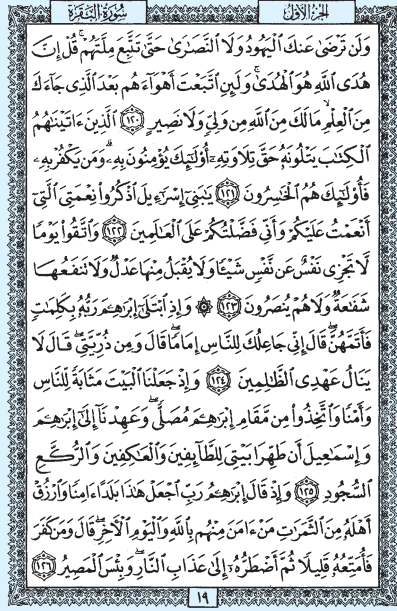 سُورَةُ البَقَرَةِ الجزء الأول
وَلَن تَرْضَىٰ عَنكَ الْيَهُودُ وَلَا النَّصَارَىٰ حَتَّىٰ تَتَّبِعَ مِلَّتَهُمْ ۗ قُلْ إِنَّ
هُدَى اللَّهِ هُوَ الْهُدَىٰ ۗ وَلَئِنِ اتَّبَعْتَ أَهْوَاءَهُم بَعْدَ الَّذِي جَاءَكَ
مِنَ الْعِلْمِ ۙ مَا لَكَ مِنَ اللَّهِ مِن وَلِيٍّ وَلَا نَصِيرٍ ۝١٢٠ الَّذِينَ ءَاتَيْنَاهُمُ
الْكِتَابَ يَتْلُونَهُ حَقَّ تِلَاوَتِهِ أُولَٰئِكَ يُؤْمِنُونَ بِهِ ۗ وَمَن يَكْفُرْ بِهِ
فَأُولَٰئِكَ هُمُ الْخَاسِرُونَ ۝١٢١ يَابَنِي إِسْرَاءِيلَ اذْكُرُوا نِعْمَتِيَ الَّتِي
أَنْعَمْتُ عَلَيْكُمْ وَأَنِّي فَضَّلْتُكُمْ عَلَى الْعَالَمِينَ ۝١٢٢ وَاتَّقُوا يَوْمًا
لَّا تَجْزِي نَفْسٌ عَن نَّفْسٍ شَيْئًا وَلَا يُقْبَلُ مِنْهَا عَدْلٌ وَلَا تَنفَعُهَا
شَفَاعَةٌ وَلَا هُمْ يُنصَرُونَ ۝١٢٣ ۞ وَإِذِ ابْتَلَىٰ إِبْرَاهِيمَ رَبُّهُ بِكَلِمَاتٍ
فَأَتَمَّهُنَّ ۖ قَالَ إِنِّي جَاعِلُكَ لِلنَّاسِ إِمَامًا ۖ قَالَ وَمِن ذُرِّيَّتِي ۖ قَالَ لَا
يَنَالُ عَهْدِي الظَّالِمِينَ ۝١٢٤ وَإِذْ جَعَلْنَا الْبَيْتَ مَثَابَةً لِّلنَّاسِ
وَأَمْنًا وَاتَّخِذُوا مِن مَّقَامِ إِبْرَاهِيمَ مُصَلًّى ۖ وَعَهِدْنَا إِلَىٰ إِبْرَاهِيمَ
وَإِسْمَاعِيلَ أَن طَهِّرَا بَيْتِيَ لِلطَّائِفِينَ وَالْعَاكِفِينَ وَالرُّكَّعِ
السُّجُودِ ۝١٢٥ وَإِذْ قَالَ إِبْرَاهِيمُ رَبِّ اجْعَلْ هَٰذَا بَلَدًا ءَامِنًا وَارْزُقْ
أَهْلَهُ مِنَ الثَّمَرَاتِ مَنْ ءَامَنَ مِنْهُم بِاللَّهِ وَالْيَوْمِ الْآخِرِ ۖ قَالَ وَمَن كَفَرَ
فَأُمَتِّعُهُ قَلِيلًا ثُمَّ أَضْطَرُّهُ إِلَىٰ عَذَابِ النَّارِ ۖ وَبِئْسَ الْمَصِيرُ ۝١٢٦
١٩